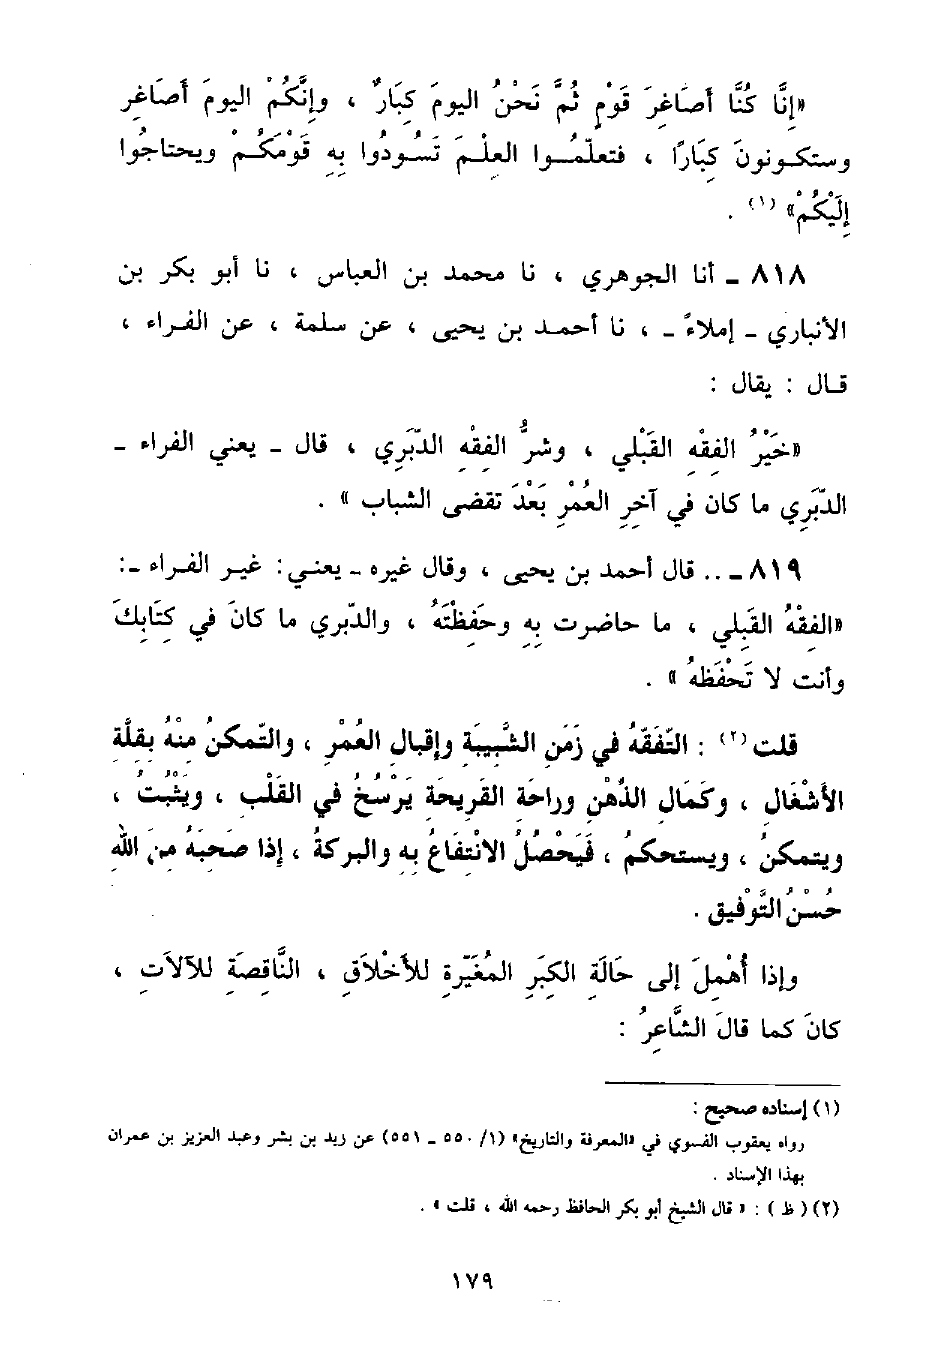 «إِنَّا كُنَّا أصَاغِرَ قَوْمٍ ثُمَّ نَحْنُ اليومَ كِبَارٌ ، وإِنَّكُمْ اليومَ أصَاغِر
وستكونونَ كِبَارًا ، فتعلّمُوا العِلْمَ تَسُودُوا بِهِ قَوْمَكُمْ ويحتاجُوا
إِلَيْكُمْ» (١) .
٨١٨ ـ أنا الجوهري ، نا محمد بن العباس ، نا أبو بكر بن
الأنباري ـ إملاءً ـ ، نا أحمد بن يحيى ، عن سلمة ، عن الفراء ،
قال : يقال :
«خَيْرُ الفِقْهِ القَبْلي ، وشرُّ الفِقْهِ الدّبَرِي ، قال ـ يعني الفراء ـ
الدّبَرِي ما كان في آخِرِ العُمْرِ بَعْدَ تقضى الشباب » .
٨١٩ ـ .. قال أحمد بن يحيى ، وقال غيره ـ يعني: غير الفراء ـ:
«الفِقْهُ القَبلي ، ما حاضرت بِهِ وحَفِظْتَهُ ، والدّبري ما كانَ في كِتَابِكَ
وأنت لا تَحْفَظهُ » .
قلت (٢) : التّفَقّهُ في زمَنِ الشَّبِيبَةِ وإقبالِ العُمْرِ ، والتّمكنُ مِنْهُ بِقلَّة
الأشْغَالِ ، وكَمَال الذّهْنِ وراحَةِ القَرِيحَةِ يَرْسَخُ في القَلْبِ ، ويَثْبُتُ ،
ويتمكنُ ، ويستحكمُ ، فَيَحْصُلُ الانْتِفَاعُ بِهِ والبركةُ ، إذا صَحِبَهُ مِنَ اللهِ
حُسْنُ التَّوْفِيقِ .
وإذا أُهْمِلَ إلى حَالَةِ الكِبَرِ المُغَيّرَةِ للأخْلاَقِ ، النَّاقِصَةِ للآلاَتِ ،
كانَ كما قالَ الشَّاعِرُ :
(١) إسناده صحيح :
رواه يعقوب الفسوي في «المعرفة والتاريخ» (١/ ٥٥٠ ـ ٥٥١) عن زيد بن بشر وعبد العزيز بن عمران
بهذا الإسناد .
(٢) ( ظ ) : « قال الشيخ أبو بكر الحافظ رحمه الله ، قلت » .
١٧٩